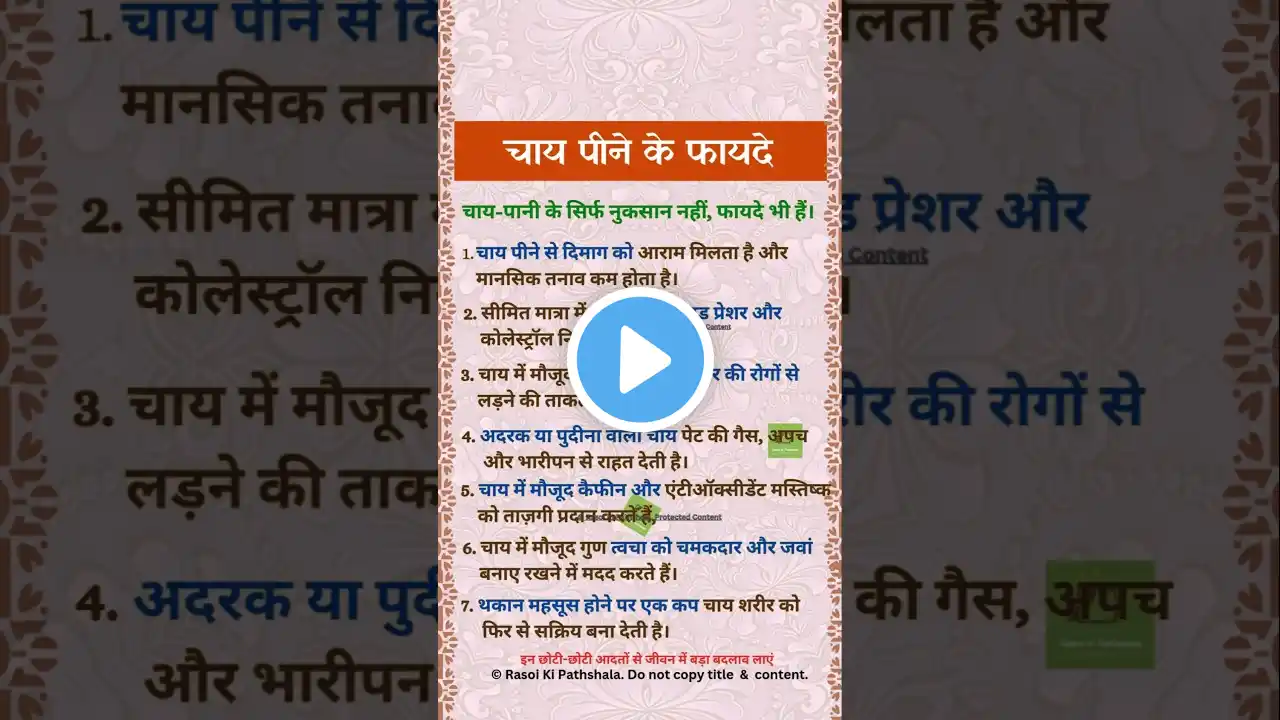 चाय पीने के फायदे
चाय-पानी के सिर्फ नुकसान नहीं, फायदे भी हैं।
1. चाय पीने से दिमाग को आराम मिलता है और
मानसिक तनाव कम होता है।
2. सीमित मात्रा में प्रेशर और
Content
कोलेस्ट्रॉल
3. चाय में मौजूद की रोगों से
लड़ने की
4. अदरक या पुदीना वाली चाय पेट की गैस, अपच
और भारीपन से राहत देती है।
5. चाय में मौजूद कैफीन और एंटीऑक्सीडेंट मस्तिष्क
को ताज़गी प्रदान करते हैं,
Protected Content
6. चाय में मौजूद गुण त्वचा को चमकदार और जवां
बनाए रखने में मदद करते हैं।
7. थकान महसूस होने पर एक कप चाय शरीर को
फिर से सक्रिय बना देती है।
इन छोटी-छोटी आदतों से जीवन में बड़ा बदलाव लाएं
© Rasoi Ki Pathshala. Do not copy title & content.